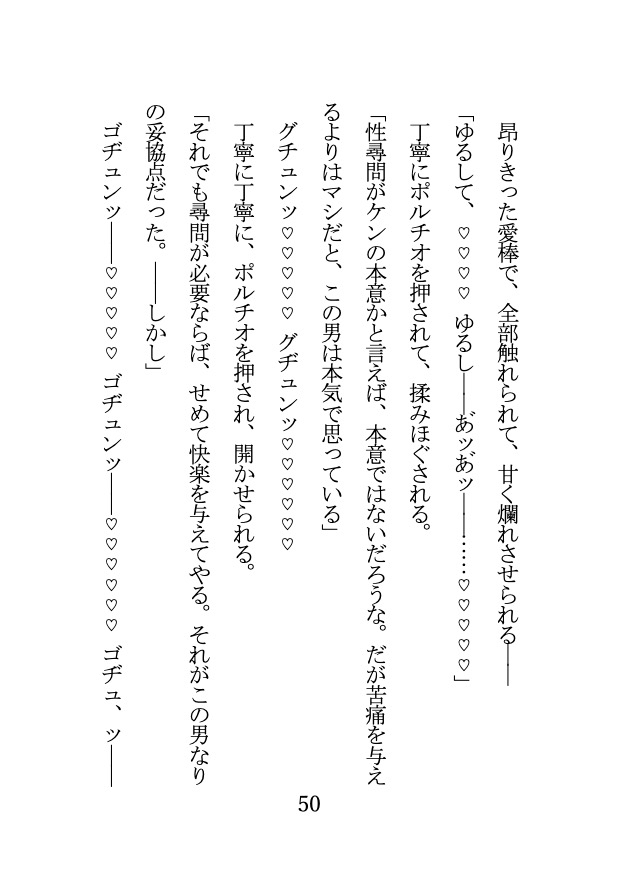 昂りきった愛棒で、全部触れられて、甘く爛れさせられる――
「ゆるして、♡♡♡♡ ゆるし――あ゛ッあ゛ッ――……♡♡♡♡♡」
丁寧にポルチオを押されて、揉みほぐされる。
「性尋問がケンの本意かと言えば、本意ではないだろうな。だが苦痛を与え
るよりはマシだと、この男は本気で思っている」
グチュンッ♡♡♡♡♡ グヂュンッ♡♡♡♡♡♡
丁寧に丁寧に、ポルチオを押され、開かせられる。
「それでも尋問が必要ならば、せめて快楽を与えてやる。それがこの男なり
の妥協点だった。――しかし」
ゴヂュンッ――♡♡♡♡♡ ゴヂュンッ――♡♡♡♡♡♡ ゴヂュ、ッ――
50